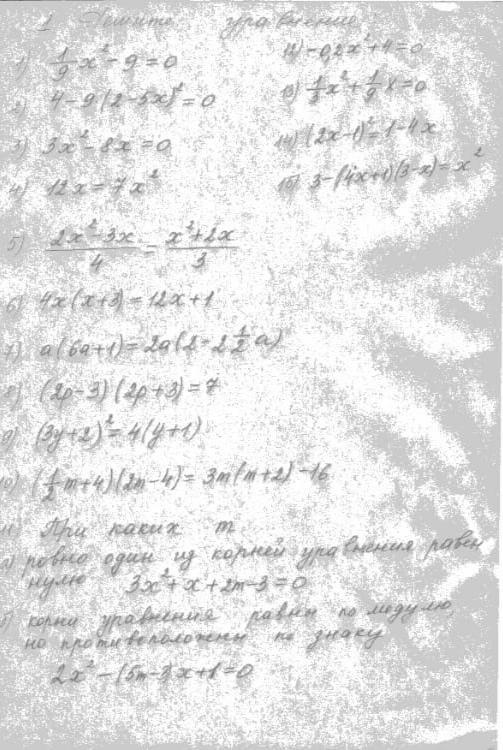 1 Решите уравнение
1) 1/9 x² - 9 = 0
2) 4 - 9(2-5x)² = 0
3) 3x² - 8x = 0
4) 12x = 7x²
5) (2x² - 3x)/4 = (x² + 2x)/3
6) 4x(x+3) = 12x+1
7) a(6a+1) = 2a(2 - 2 1/2 a)
8) (2p-3)(2p+3) = 7
9) (3y+2)² = 4(y+1)
10) (1/2 m+4)(2m-4) = 3m(m+2) - 16
11) При каких m
а) ровно один из корней уравнения равен
нулю 3x² + x + 2m - 3 = 0
б) корни уравнения равны по модулю,
но противоположны по знаку
2x² - (5m-3)x + 1 = 0
12) -0,2x² + 4 = 0
13) 1/3 x² + 1/9 x = 0
14) (2x-1)² = 1-4x
15) 3-(4x+1)(3-x) = x²